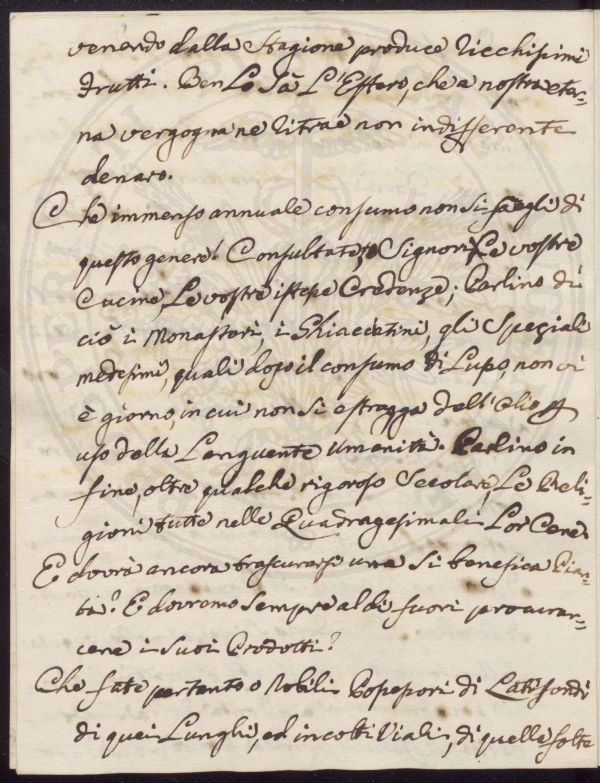 venendo dalla Stagione produce ricchissimi
frutti. Ben Lo Sà L'Estero, che a nostra eter-
na vergogna ne ritrae non indifferente
denaro.
Che immenso annuale consumo non si fà egli di
questo genere! Consultate, o Signori Le vostre
Cucine, Le vostre istesse Credenze; Parlino di
ciò i Monasteri, i Ghiacciatini, gli Speziali
medesimi, quali dopo il consumo di Lupo, non vi
è giorno, in cui non si estragga dell'Olio p
uso della Languente umanità. Parlino in
fine, oltre qualche rigoroso Secolare, Le Reli-
gioni tutte nelle Quadragesimali Lor Cene.
E dovrà ancora trascurarsi una si benefica Pian-
ta? E dovremo sempre al di fuori procurar-
cene i suoi Prodotti?
Che fate pertanto o Nobili Possessori di Latifondi
di quei Lunghi, ed incolti Viali, di quelle folte